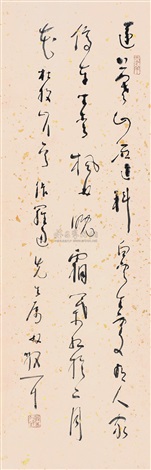 遠上寒山石迳斜白雲生處有人家
停車坐愛楓林晚霜葉紅於二月
花杜牧先生属